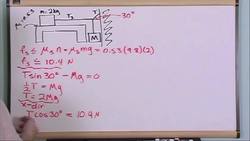 μs = 0.53 m=2kg T₂ T 30°
M
fs ≤ μs n = μs mg = 0.53(9.8)(2)
fs ≤ 10.4 N
T sin 30° - Mg = 0
½T = Mg
T = 2Mg
x-dir
T cos 30° = 10.4N